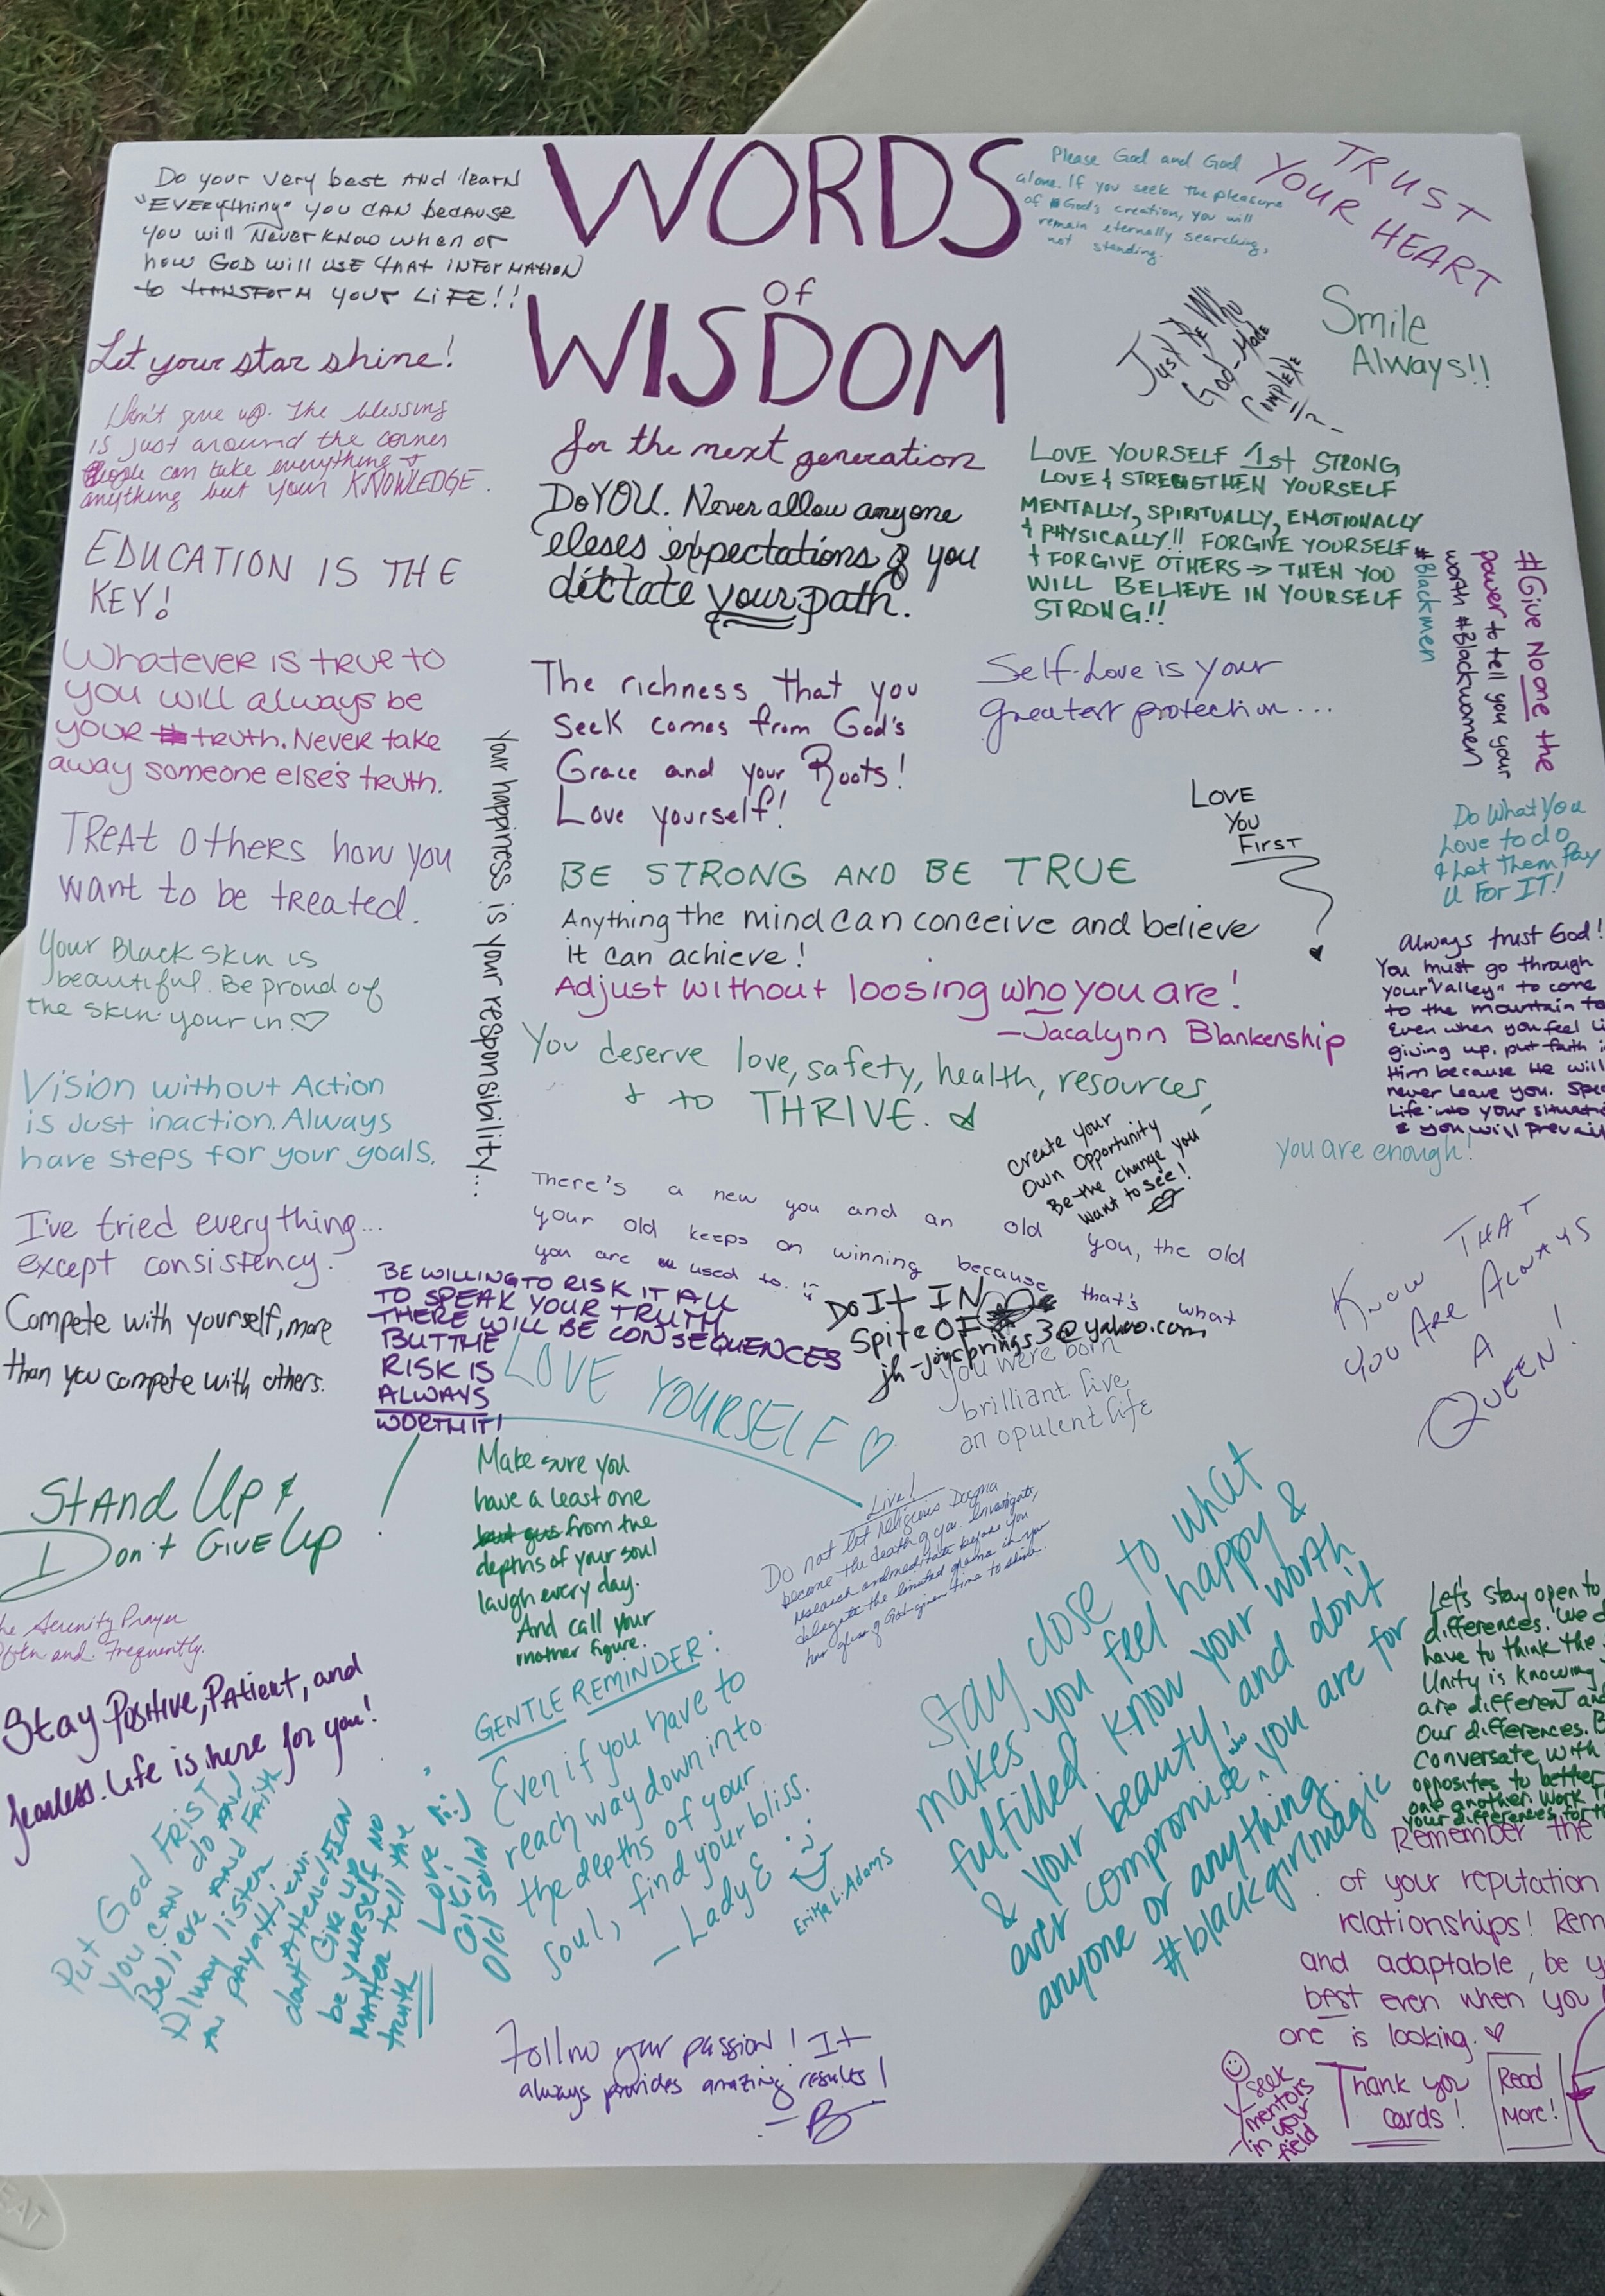 WORDS
OF
WISDOM
for the next generation
Do your very best AND learn
"EVERything" you CAN because
you will Never know when or
how GOD will use that INFORMATION
to TRANSFORM your LiFE!!
Let your star shine!
Don't give up. The blessing
is just around the corner
People can take everything &
anything but your KNOWLEDGE.
EDUCATION IS THE
KEY!
Whatever is true to
you will always be
your truth. Never take
away someone else's truth.
Treat others how you
want to be treated.
Your Black skin is
beautiful. Be proud of
the skin your in ♡
Vision without Action
is Just inaction. Always
have steps for your goals.
I've tried everything...
except consistency.
Compete with yourself, more
than you compete with others.
Stand Up &
Don't Give Up !
he Serenity Prayer
ften and Frequently.
Stay Positive, Patient, and
fearless. Life is here for you!
Put God Frist
you can do And
Believe And Faith
Alway listen
an payattieni
dont Attend/FIEN
Give up
be yourself NO
MAtter tell the
truth
Love
Old Sould
Your happiness is your responsibility...
Do YOU. Never allow anyone
eleses expectations of you
dictate your path.
The richness that you
seek comes from God's
Grace and your Roots!
Love yourself!
BE STRONG AND BE TRUE
Anything the mind can conceive and believe
it can achieve!
Adjust without loosing who you are!
-Jacalynn Blankenship
You deserve love, safety, health, resources,
& to THRIVE.
create your
own opportunity
Be the change you
want to see!
There's a new you and an old you, the old
your old keeps on winning because that's what
you are used to.
BE WILLING TO RISK IT ALL
TO SPEAK YOUR TRUTH
THERE WILL BE CONSEQUENCES
BUT THE
RISK IS
ALWAYS
WORTH IT!
Do It IN
Spite OF
jh-joysprings3@yahoo.com
You were born
brilliant. live
an opulent life
LOVE YOURSELF ♡
Make sure you
have a least one
from the
depths of your soul
laugh every day.
And call your
mother figure.
Live!
Do not let religious Dogma
become the death of you. Investigate,
research and meditate before you
delegate the limited grains in your
hour glass of God-given time to shine.
GENTLE REMINDER:
Even if you have to
reach way down into
the depths of your
soul, find your bliss.
-Lady E
Erika L. Adams
Follow your passion! It
always provides amazing results!
-B
Please God and God
alone. If you seek the pleasure
of God's creation, you will
remain eternally searching,
not standing.
TRUST
YOUR HEART
Just Be Who
God-Made
Complete
Smile
Always!!
LOVE YOURSELF 1st STRONG
LOVE & STRENGTHEN YOURSELF
MENTALLY, SPIRITUALLY, EMOTIONALLY
& PHYSICALLY!! FORGIVE YOURSELF
& FORGIVE OTHERS → THEN YOU
WILL BELIEVE IN YOURSELF
STRONG!!
#Give No one the
power to tell you your
worth #Blackwomen
#Blackmen
Self-Love is your
greatest protection...
LOVE
YOU
First
Do What You
Love to do
& Let Them Pay
U For IT!
Always trust God!
You must go through
your "valley" to come
to the mountain to
Even when you feel li
giving up, put faith i
Him because He will
never leave you. Spe
Life into your situati
& you will prevail
You are enough!
Know THAT
YOU ARE ALWAYS
A
QUEEN!
Stay close to what
makes you feel happy &
fulfilled. Know your worth
& your beauty! and don't
ever compromise who you are for
anyone or anything.
#blackgirlmagic
Let's stay open to
differences. We d
have to think the
Unity is knowing
are different and
our differences. B
Conversate with
opposites to better
one another. Work T
your differences for th
Remember the
of your reputation
relationships! Rem
and adaptable, be y
best even when you
one is looking. ♡
seek
mentors
in your
field
Thank you
cards!
Read
More!